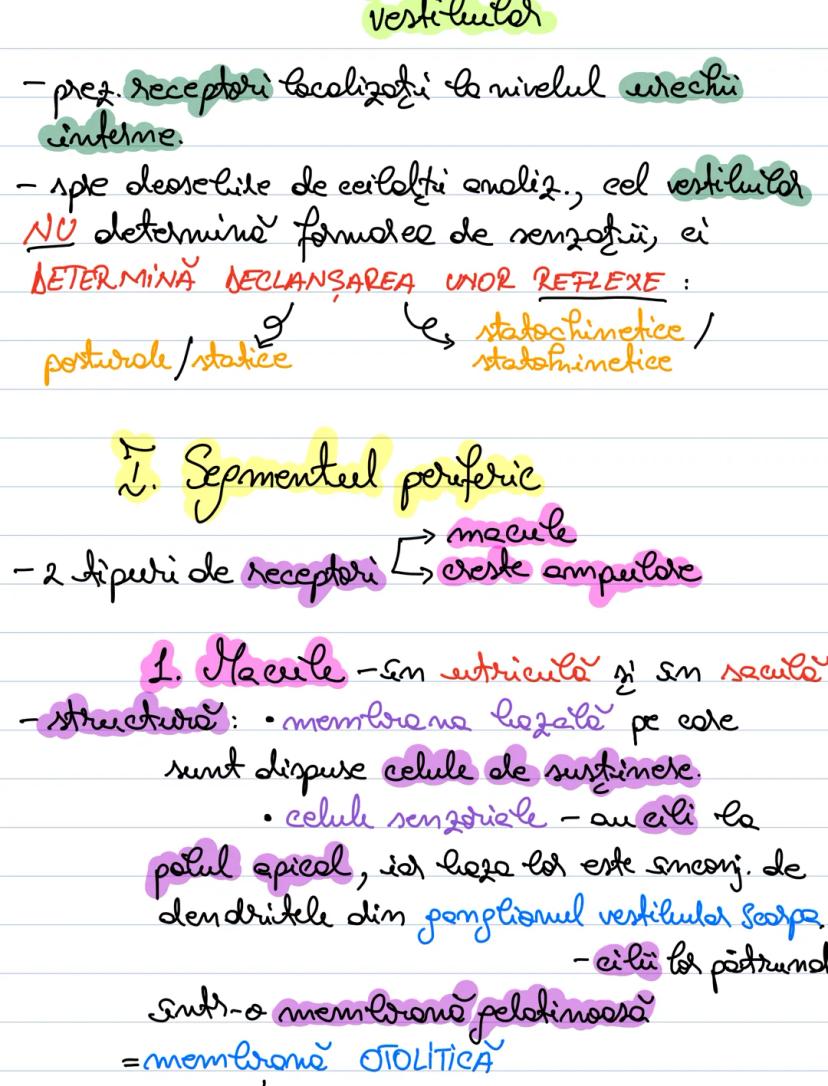 vestibular
- prez. receptori localizați la nivelul urechii
interne.
- spre deosebire de ceilalți analiz., cel vestibular
NU determină formarea de senzații, ci
DETERMINĂ DECLANȘAREA UNOR REFLEXE :
posturale/statice
statochinetice /
statokinetice
I. Segmentul periferic
macule
- 2 tipuri de receptori
creste ampulare
1. Macule - în utriculă și în saculă
- structură: • membrana bazală pe care
sunt dispuse celule de susținere.
• celule senzoriale - au cili la
polul apical, iar baza lor este înconj. de
dendritele din ganglionul vestibular Scarpa.
- cilii lor pătrund
într-o membrană gelatinoasă
= membrană OTOLITICĂ